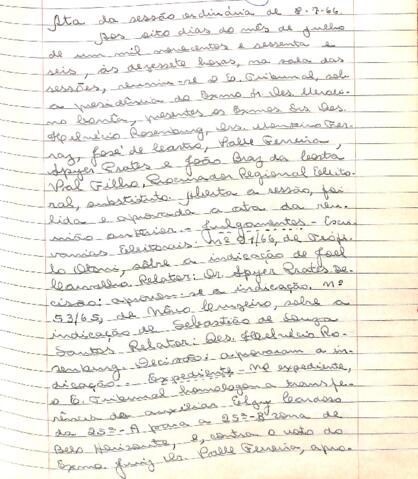 Ata da sessão ordinária de 8-7-66.
Aos oito dias do mês de julho
de um mil novecentos e sessenta e
seis, às dezessete horas, na sala das
sessões, reuniu-se o E. Tribunal, sob
a presidência do Exmo Sr. Des.
presentes os Exmos Srs. Des.
Helvécio Rosenburg, Drs. Monteiro Fer-
raz, José de Castro, Valle Ferreira,
Spyer Prates e João Braz da Costa
Val Filho, Procurador Regional Eleito-
ral, substituto. Aberta a sessão, foi
lida e aprovada a ata da reu-
nião anterior. - Julgamentos - Escri-
vanias Eleitorais: nº 21/66, de Teófi-
lo Otoni, sobre a indicação de Joel
Carvalho. Relator: Dr. Spyer Prates. De-
cisão: aprovou-se a indicação. Nº
53/65, de Novo Cruzeiro, sobre a
indicação de Sebastião de Souza
Santos. Relator: Des. Helvécio Ro-
senburg. Decisão: aprovaram a in-
dicação. - Expediente - No expediente,
o E. Tribunal homologou a transfe-
rência do auxiliar Cardoso
da 25ª-A para a 25ª-B zona de
Belo Horizonte, e, contra o voto do
Exmo. Juiz Dr. Valle Ferreira, apro-